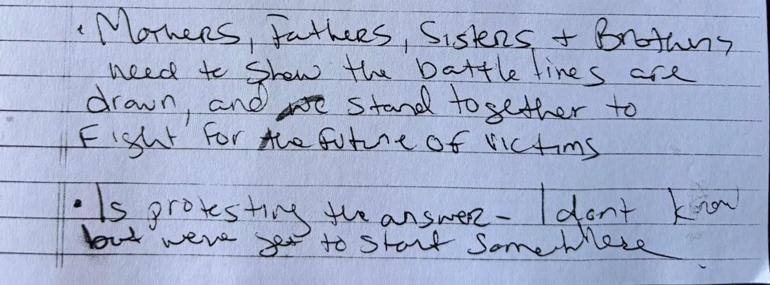 • Mothers, Fathers, Sisters + Brothers
need to show the battle lines are
drawn, and we stand together to
Fight for the future of victims
• Is protesting the answer - I dont know
but were got to start somewhere